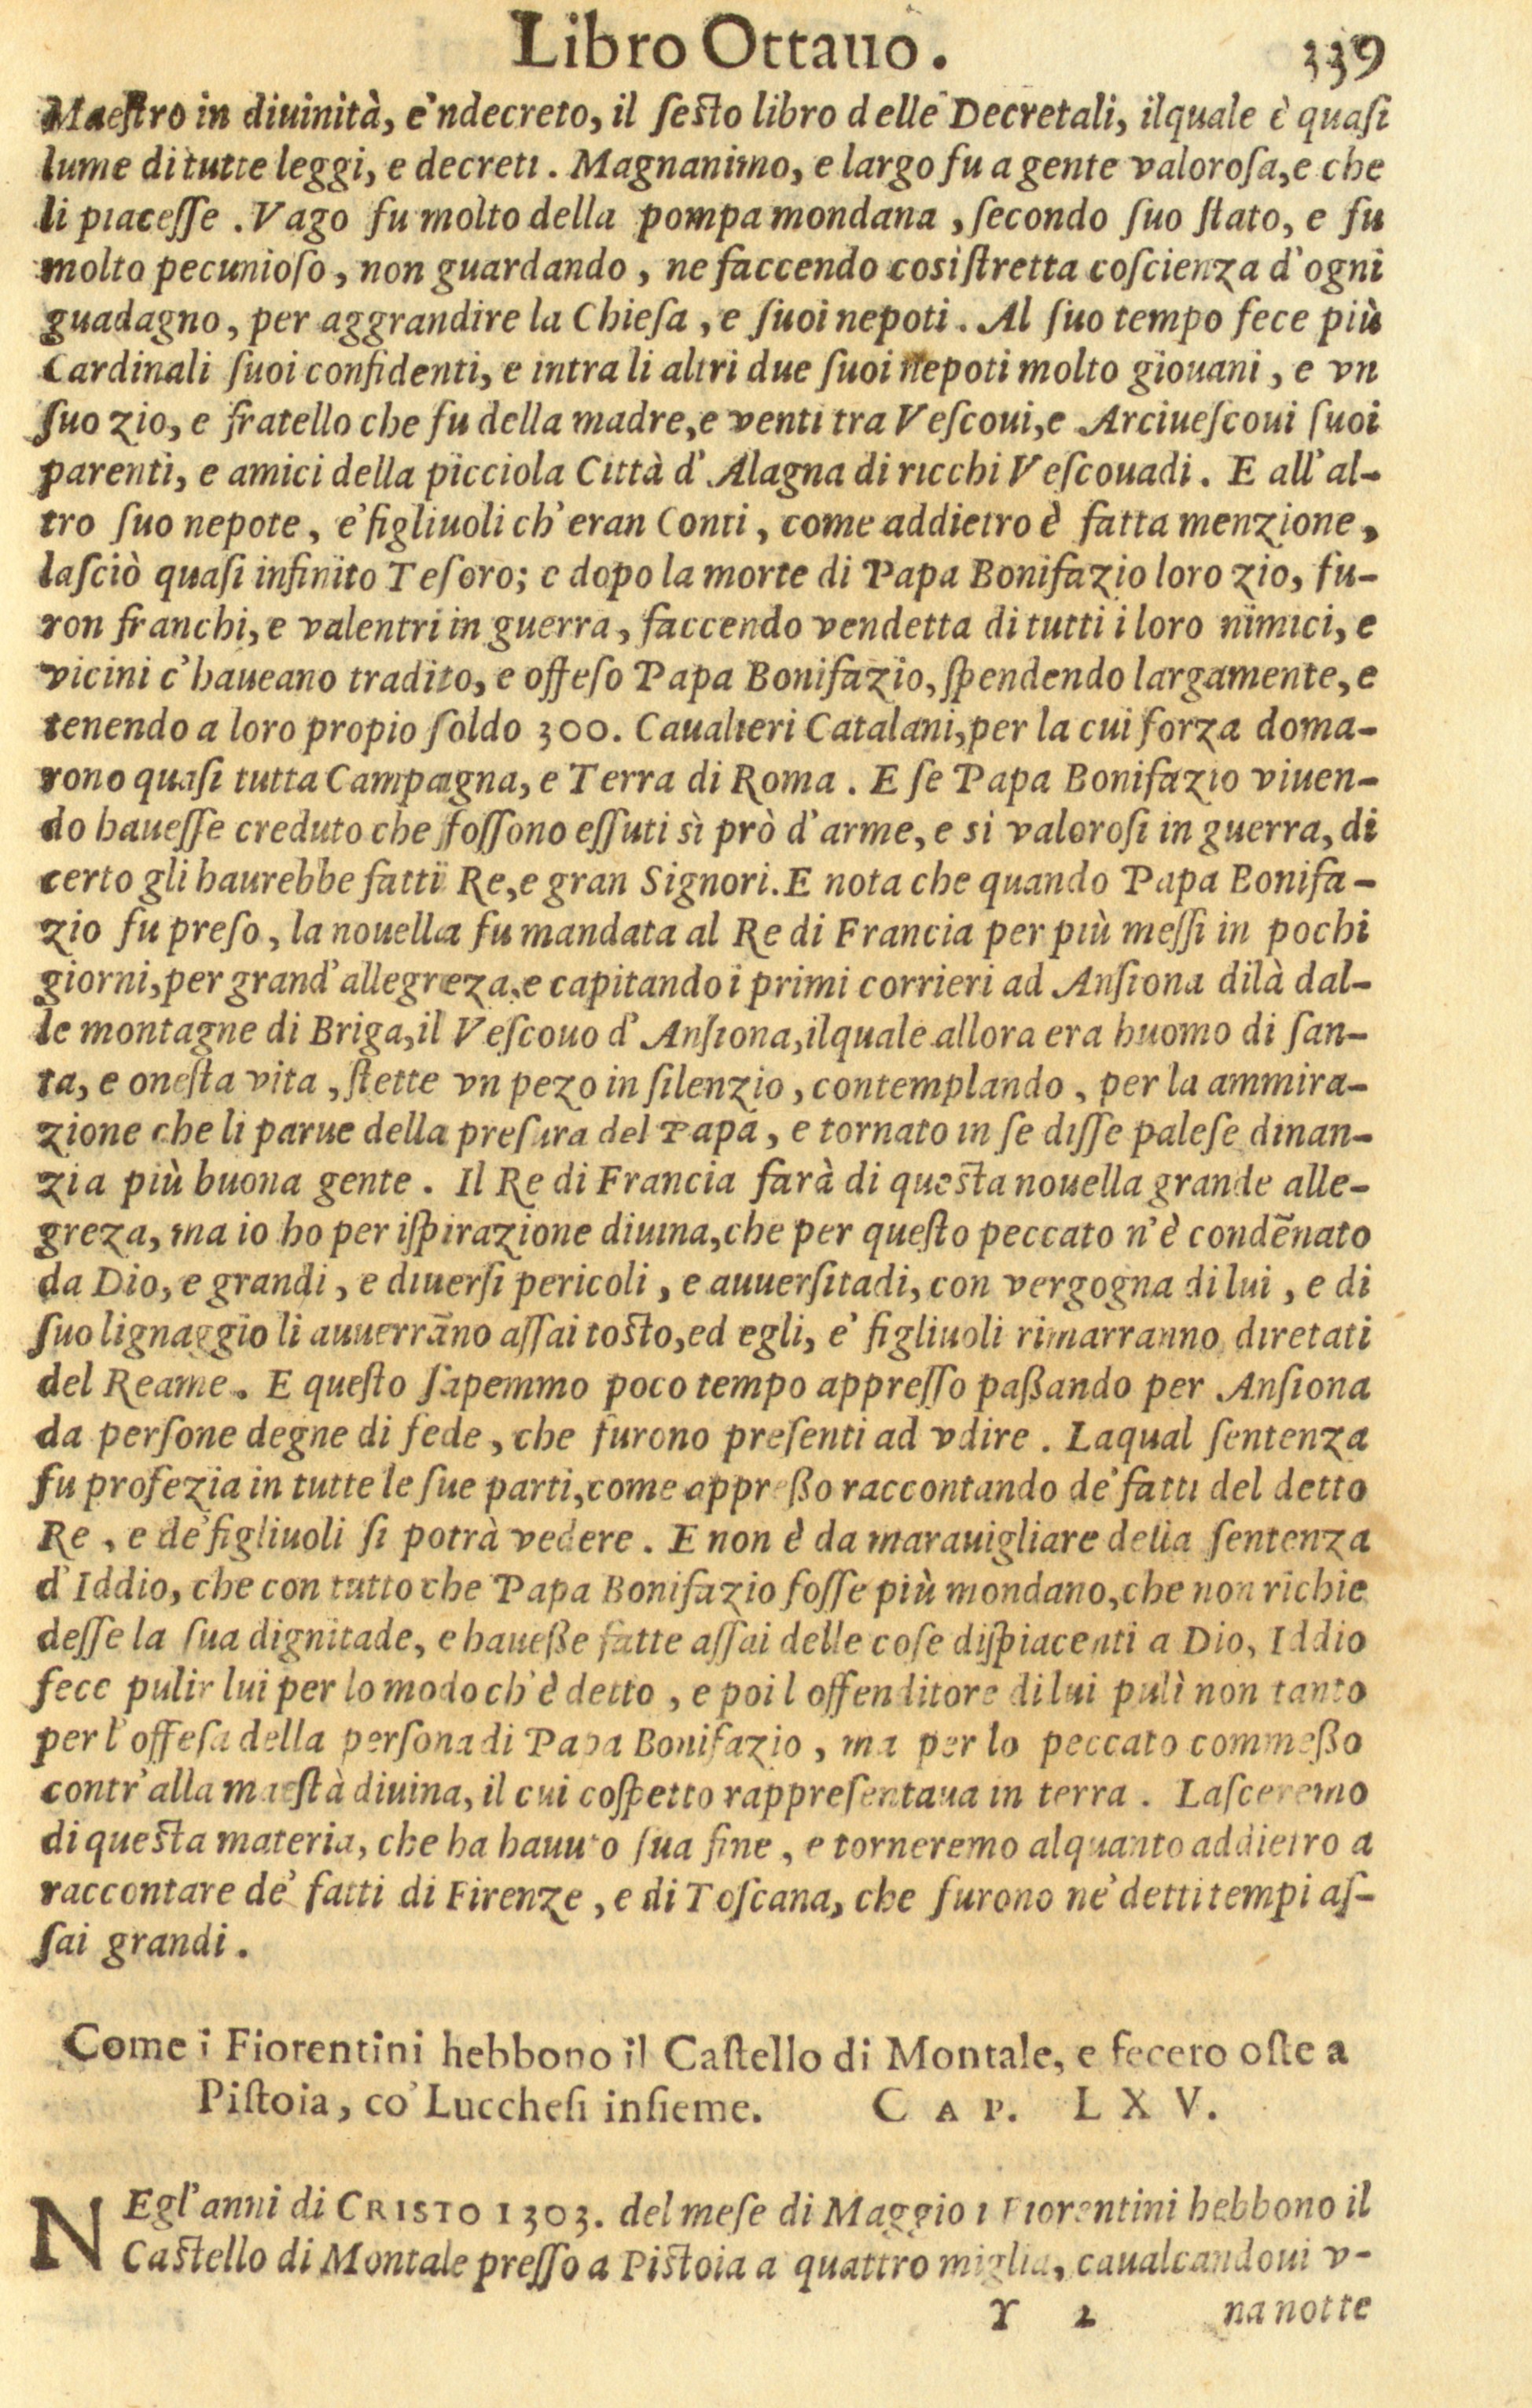 Libro Ottauo. 339
Maeſtro in diuinità, e'ndecreto, il ſeſto libro delle Decretali, ilquale è quaſi
lume di tutte leggi, e decreti. Magnanimo, e largo fu a gente valoroſa, e che
li piaceſſe. Vago fu molto della pompa mondana, ſecondo ſuo ſtato, e fu
molto pecunioſo, non guardando, ne faccendo cosìſtretta coſcienza d'ogni
guadagno, per aggrandire la Chieſa, e ſuoi nepoti. Al ſuo tempo fece più
Cardinali ſuoi confidenti, e intra li altri due ſuoi nepoti molto giouani, e vn
ſuo zio, e fratello che fu della madre, e venti tra Veſcoui, e Arciueſcoui ſuoi
parenti, e amici della picciola Città d'Alagna di ricchi Veſcouadi. E all'al-
tro ſuo nepote, e'figliuoli ch'eran Conti, come addietro è fatta menzione,
laſciò quaſi infinito Teſoro; e dopo la morte di Papa Bonifazio loro zio, fu-
ron franchi, e valentri in guerra, faccendo vendetta di tutti i loro nimici, e
vicini c'haueano tradito, e offeſo Papa Bonifazio, ſpendendo largamente, e
tenendo a loro propio ſoldo 300. Caualieri Catalani, per la cui forza doma-
rono quaſi tutta Campagna, e Terra di Roma. E ſe Papa Bonifazio viuen-
do haueſſe creduto che foſſono eſſuti sì prò d'arme, e si valoroſi in guerra, di
certo gli haurebbe fatti Re, e gran Signori. E nota che quando Papa Bonifa-
zio fu preſo, la nouella fu mandata al Re di Francia per più meſſi in pochi
giorni, per grand'allegreza, e capitando i primi corrieri ad Anſiona dilà dal-
le montagne di Briga, il Veſcouo d'Anſiona, ilquale allora era huomo di ſan-
ta, e oneſta vita, ſtette vn pezo in ſilenzio, contemplando, per la ammira-
zione che li parue della preſura del Papa, e tornato in ſe diſſe paleſe dinan-
zi a più buona gente. Il Re di Francia farà di queſta nouella grande alle-
greza, ma io ho per iſpirazione diuina, che per queſto peccato n'è condẽnato
da Dio, e grandi, e diuerſi pericoli, e auuerſitadi, con vergogna di lui, e di
ſuo lignaggio li auuerrãno aſſai toſto, ed egli, e' figliuoli rimarranno diretati
del Reame. E queſto ſapemmo poco tempo appreſſo paßando per Anſiona
da perſone degne di fede, che furono preſenti ad vdire. Laqual ſentenza
fu profezia in tutte le ſue parti, come appreßo raccontando de'fatti del detto
Re, e de'figliuoli ſi potrà vedere. E non è da marauigliare della ſentenza
d'Iddio, che con tutto che Papa Bonifazio foſſe più mondano, che non richie
deſſe la ſua dignitade, e haueße fatte aſſai delle coſe diſpiacenti a Dio, Iddio
fece pulir lui per lo modo ch'è detto, e poi l offenditore di lui pulì non tanto
per l'offeſa della perſona di Papa Bonifazio, ma per lo peccato commeßo
contr'alla maeſtà diuina, il cui coſpetto rappreſentaua in terra. Laſceremo
di queſta materia, che ha hauuto ſua fine, e torneremo alquanto addietro a
raccontare de' fatti di Firenze, e di Toſcana, che furono ne'detti tempi aſ-
ſai grandi.
Come i Fiorentini hebbono il Caſtello di Montale, e fecero oſte a
Piſtoia, co'Luccheſi inſieme. CAP. LXV.
NEgl'anni di CRISTO 1303. del meſe di Maggio i Fiorentini hebbono il
Caſtello di Montale preſſo a Piſtoia a quattro miglia, caualcandoui v-
Y 2 na notte